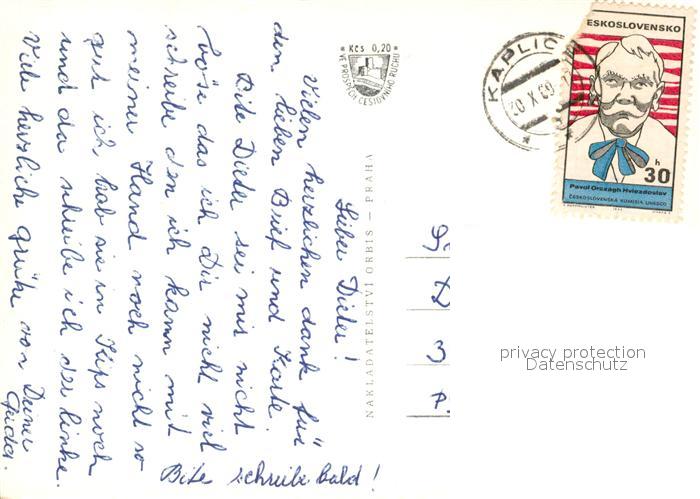 Lieber Dieter!
Vielen herzlichen dank für
den lieben Brief und Karte.
Bite Dieter sei mir nicht
böse das ich Dir nicht viel
schreibe den ich kann mit
meiner Hand noch nicht so
gut ich hab sie in Kips noch
und da schreibe ich der linke.
Viele herzliche grüße von Deiner
Bite schreibe bald!
Kčs 0,20
VE PROSPĚCH CESTOVNÍHO RUCHU
NAKLADATELSTVÍ ORBIS – PRAHA
KAPLIC
30 X 69
ESKOSLOVENSKO
30 h
Pavol Országh Hviezdoslav
ČESKOSLOVENSKÁ KOMISIA UNESCO
3
privacy protection
Datenschutz